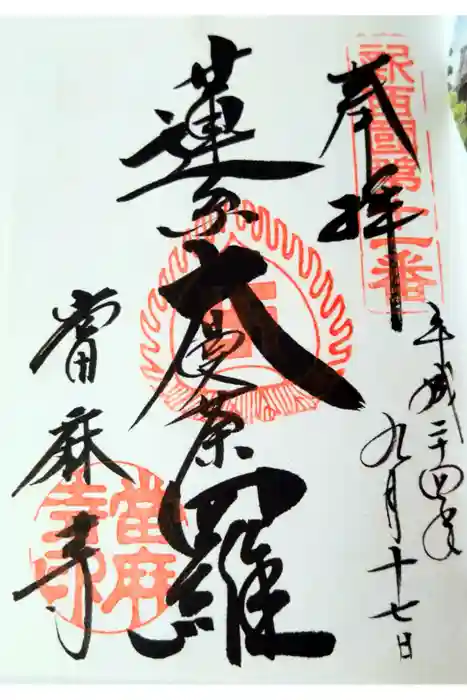 新西國第十一番
奉拝
平成二十四年
九月十七日
蓮糸大曼荼羅
當麻寺
當麻寺印